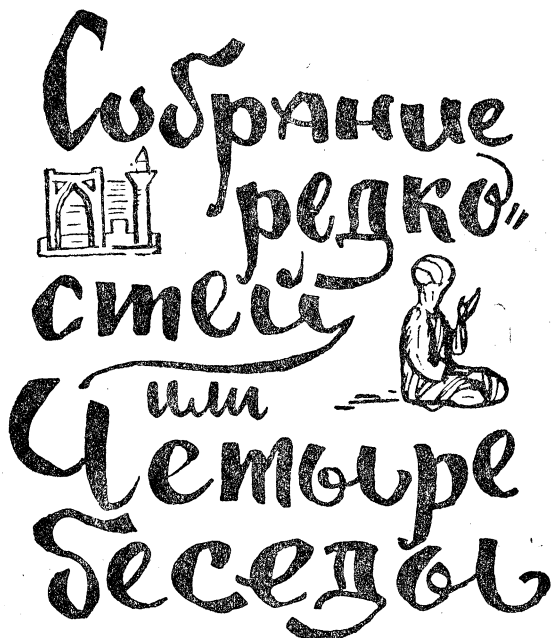 Собрание
редко"
стей
или
Четыре
беседы